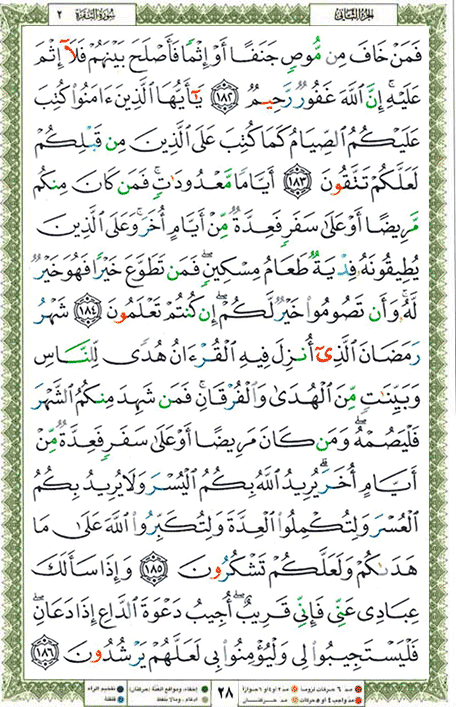 الجزء الثاني ٢ سورة البقرة
فَمَنْ خَافَ مِن مُّوصٍ جَنَفًا أَوْ إِثْمًا فَأَصْلَحَ بَيْنَهُمْ فَلَآ إِثْمَ
عَلَيْهِ ۚ إِنَّ ٱللَّهَ غَفُورٌ رَّحِيمٌ ١٨٢ يَٰٓأَيُّهَا ٱلَّذِينَ ءَامَنُوا۟ كُتِبَ
عَلَيْكُمُ ٱلصِّيَامُ كَمَا كُتِبَ عَلَى ٱلَّذِينَ مِن قَبْلِكُمْ
لَعَلَّكُمْ تَتَّقُونَ ١٨٣ أَيَّامًا مَّعْدُودَٰتٍ ۚ فَمَن كَانَ مِنكُم
مَّرِيضًا أَوْ عَلَىٰ سَفَرٍ فَعِدَّةٌ مِّنْ أَيَّامٍ أُخَرَ ۚ وَعَلَى ٱلَّذِينَ
يُطِيقُونَهُۥ فِدْيَةٌ طَعَامُ مِسْكِينٍ ۖ فَمَن تَطَوَّعَ خَيْرًا فَهُوَ خَيْرٌ
لَّهُۥ ۚ وَأَن تَصُومُوا۟ خَيْرٌ لَّكُمْ ۖ إِن كُنتُمْ تَعْلَمُونَ ١٨٤ شَهْرُ
رَمَضَانَ ٱلَّذِىٓ أُنزِلَ فِيهِ ٱلْقُرْءَانُ هُدًى لِّلنَّاسِ
وَبَيِّنَٰتٍ مِّنَ ٱلْهُدَىٰ وَٱلْفُرْقَانِ ۚ فَمَن شَهِدَ مِنكُمُ ٱلشَّهْرَ
فَلْيَصُمْهُ ۖ وَمَن كَانَ مَرِيضًا أَوْ عَلَىٰ سَفَرٍ فَعِدَّةٌ مِّنْ
أَيَّامٍ أُخَرَ ۗ يُرِيدُ ٱللَّهُ بِكُمُ ٱلْيُسْرَ وَلَا يُرِيدُ بِكُمُ
ٱلْعُسْرَ وَلِتُكْمِلُوا۟ ٱلْعِدَّةَ وَلِتُكَبِّرُوا۟ ٱللَّهَ عَلَىٰ مَا
هَدَىٰكُمْ وَلَعَلَّكُمْ تَشْكُرُونَ ١٨٥ وَإِذَا سَأَلَكَ
عِبَادِى عَنِّى فَإِنِّى قَرِيبٌ ۖ أُجِيبُ دَعْوَةَ ٱلدَّاعِ إِذَا دَعَانِ ۖ
فَلْيَسْتَجِيبُوا۟ لِى وَلْيُؤْمِنُوا۟ بِى لَعَلَّهُمْ يَرْشُدُونَ ١٨٦
٢٨